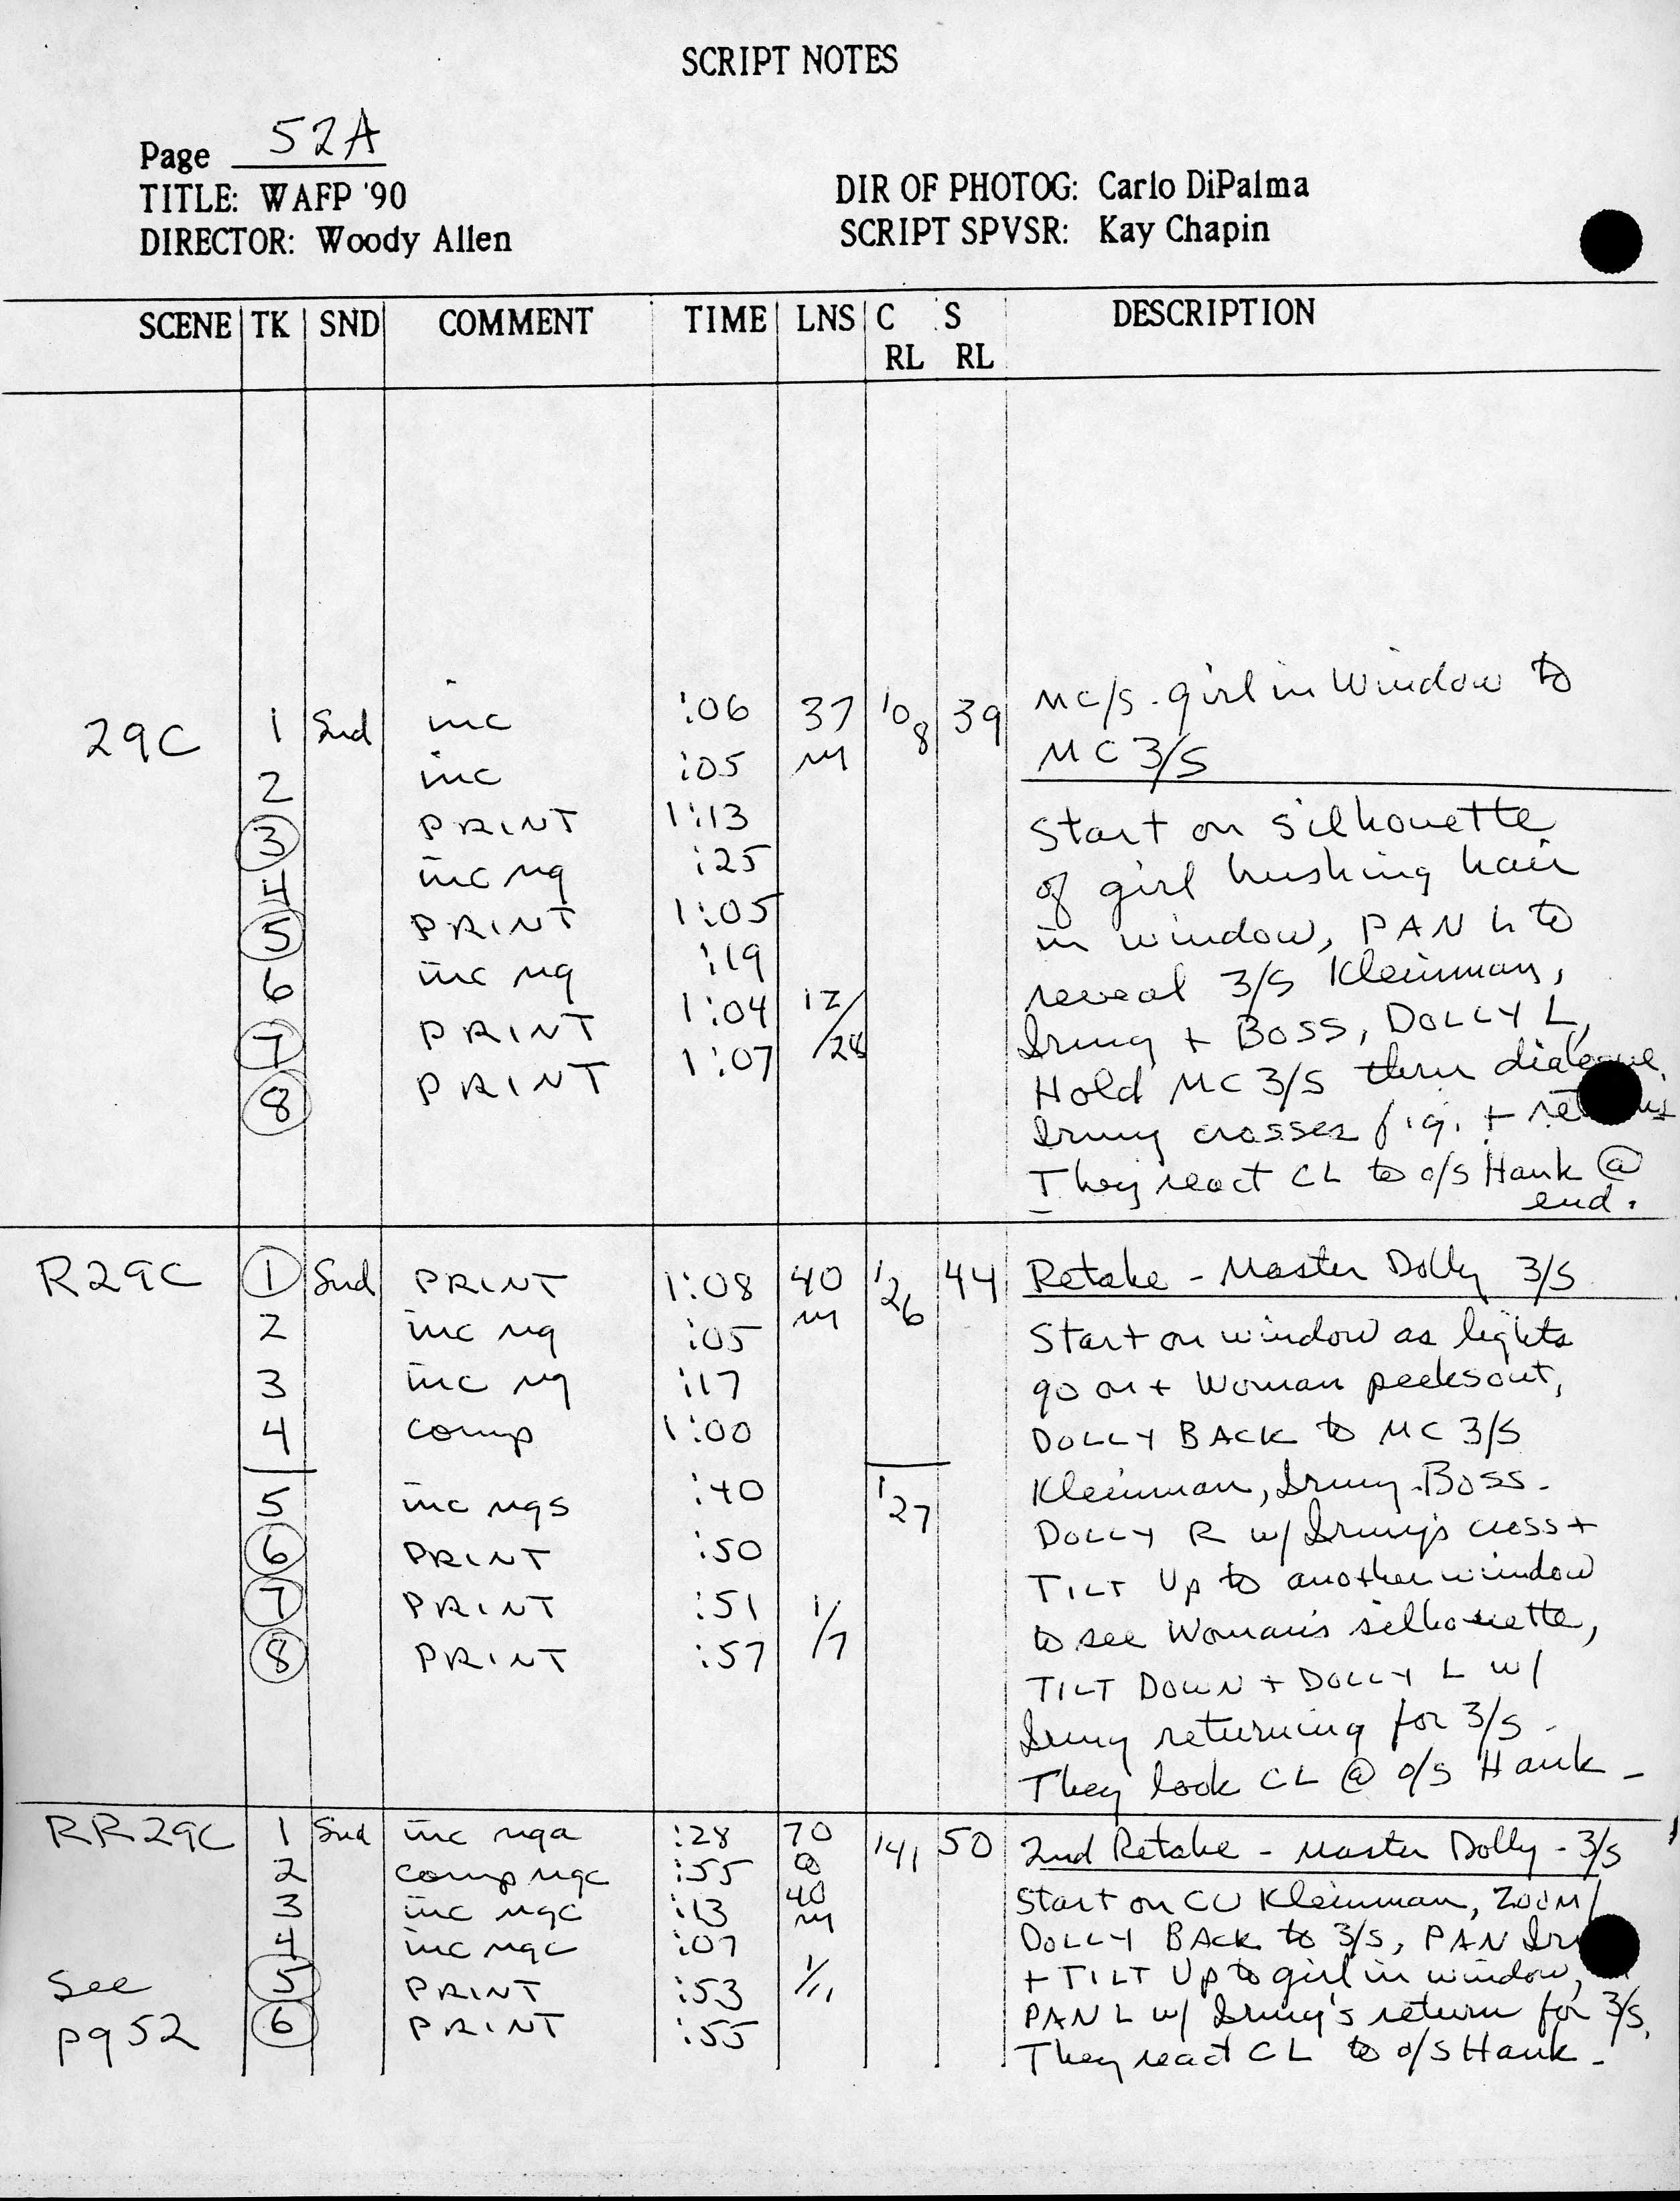 SCRIPT NOTES
Page 52A
TITLE: WAFP '90
DIRECTOR: Woody Allen
DIR OF PHOTOG: Carlo DiPalma
SCRIPT SPVSR: Kay Chapin
SCENE TK SND COMMENT TIME LNS C RL S RL DESCRIPTION
29C 1 Snd inc :06 37 108 39 MC/S. girl in Window to
2 inc :05 m MC 3/S
3 PRINT 1:13 Start on silhouette
4 inc ng :25 of girl brushing hair
5 PRINT 1:05 in window, PAN L to
6 inc ng :19 reveal 3/S Kleinman,
7 PRINT 1:04 12/ Irmy + BOSS, DOLLY L,
8 PRINT 1:07 /28 Hold MC 3/S thru dialogue.
Irmy crosses f.g. + returns
They react CL to o/s Hank @
end.
R29C 1 Snd PRINT 1:08 40 126 44 Retake - Master Dolly 3/S
2 inc ng :05 m Start on window as lights
3 inc ng :17 go on + Woman peeks out,
4 comp 1:00 DOLLY BACK to MC 3/S
5 inc ngs :40 127 Kleinman, Irmy, Boss.
6 PRINT :50 DOLLY R w/ Irmy's cross +
7 PRINT :51 1/7 TILT Up to another window
8 PRINT :57 to see Woman's silhouette,
TILT DOWN + DOLLY L w/
Irmy returning for 3/S -
They look CL @ o/s Hank -
RR29C 1 Snd inc nga :28 70 141 50 2nd Retake - Master Dolly - 3/S
2 comp ngc :55 Start on CU Kleinman, ZOOM/
3 inc ngc :13 40 DOLLY BACK to 3/S, PAN
4 inc ngc :07 m + TILT Up to girl in window,
See 5 PRINT :53 1/11 PAN L w/ Irmy's return for 3/S.
pg 52 6 PRINT :55 They react CL to o/s Hank -